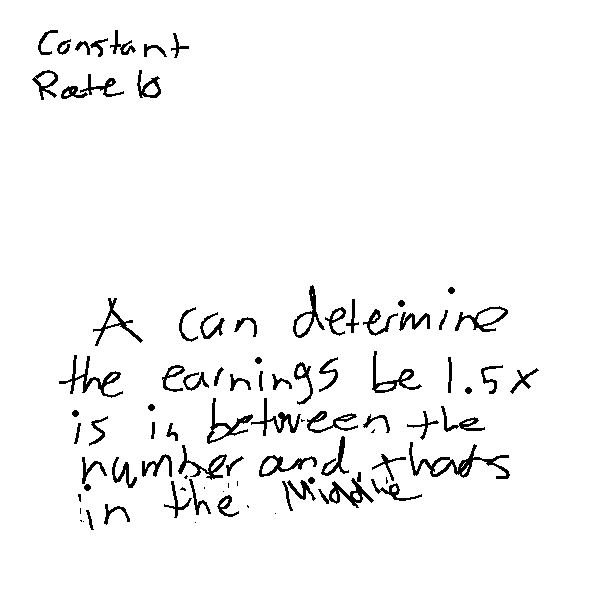 Constant
Rate 6
A can determine
the earnings be 1.5x
is in between the
number and thats
in the Middle